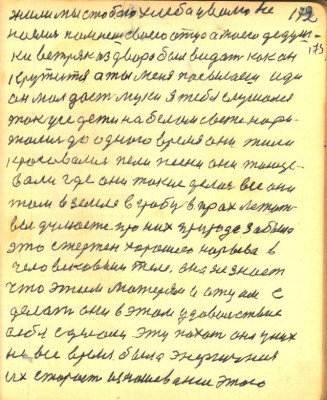 жили мы с тобой хлеба у вало не 172
173
помним своего отца а моего дедуш-
ки ветряк аз двора был видат как он
крутится а ты меня посылаеш иди
он мол даст муки я тебя слушался
так уседети на белом свете нари-
жалися до одного время они жили
красавалися пели песни они танце-
вали где они такие делися все они
там в земле в гробу в прах летит
вы думаете про них природа забыла
это стержен хорошего нарыва в
человеческим теле она не знает
что этим матерям и отцам с
делать они в этом удовольствие
себя сделали эту похот она у них
не все время была энергичная
их старост изношеванси этого